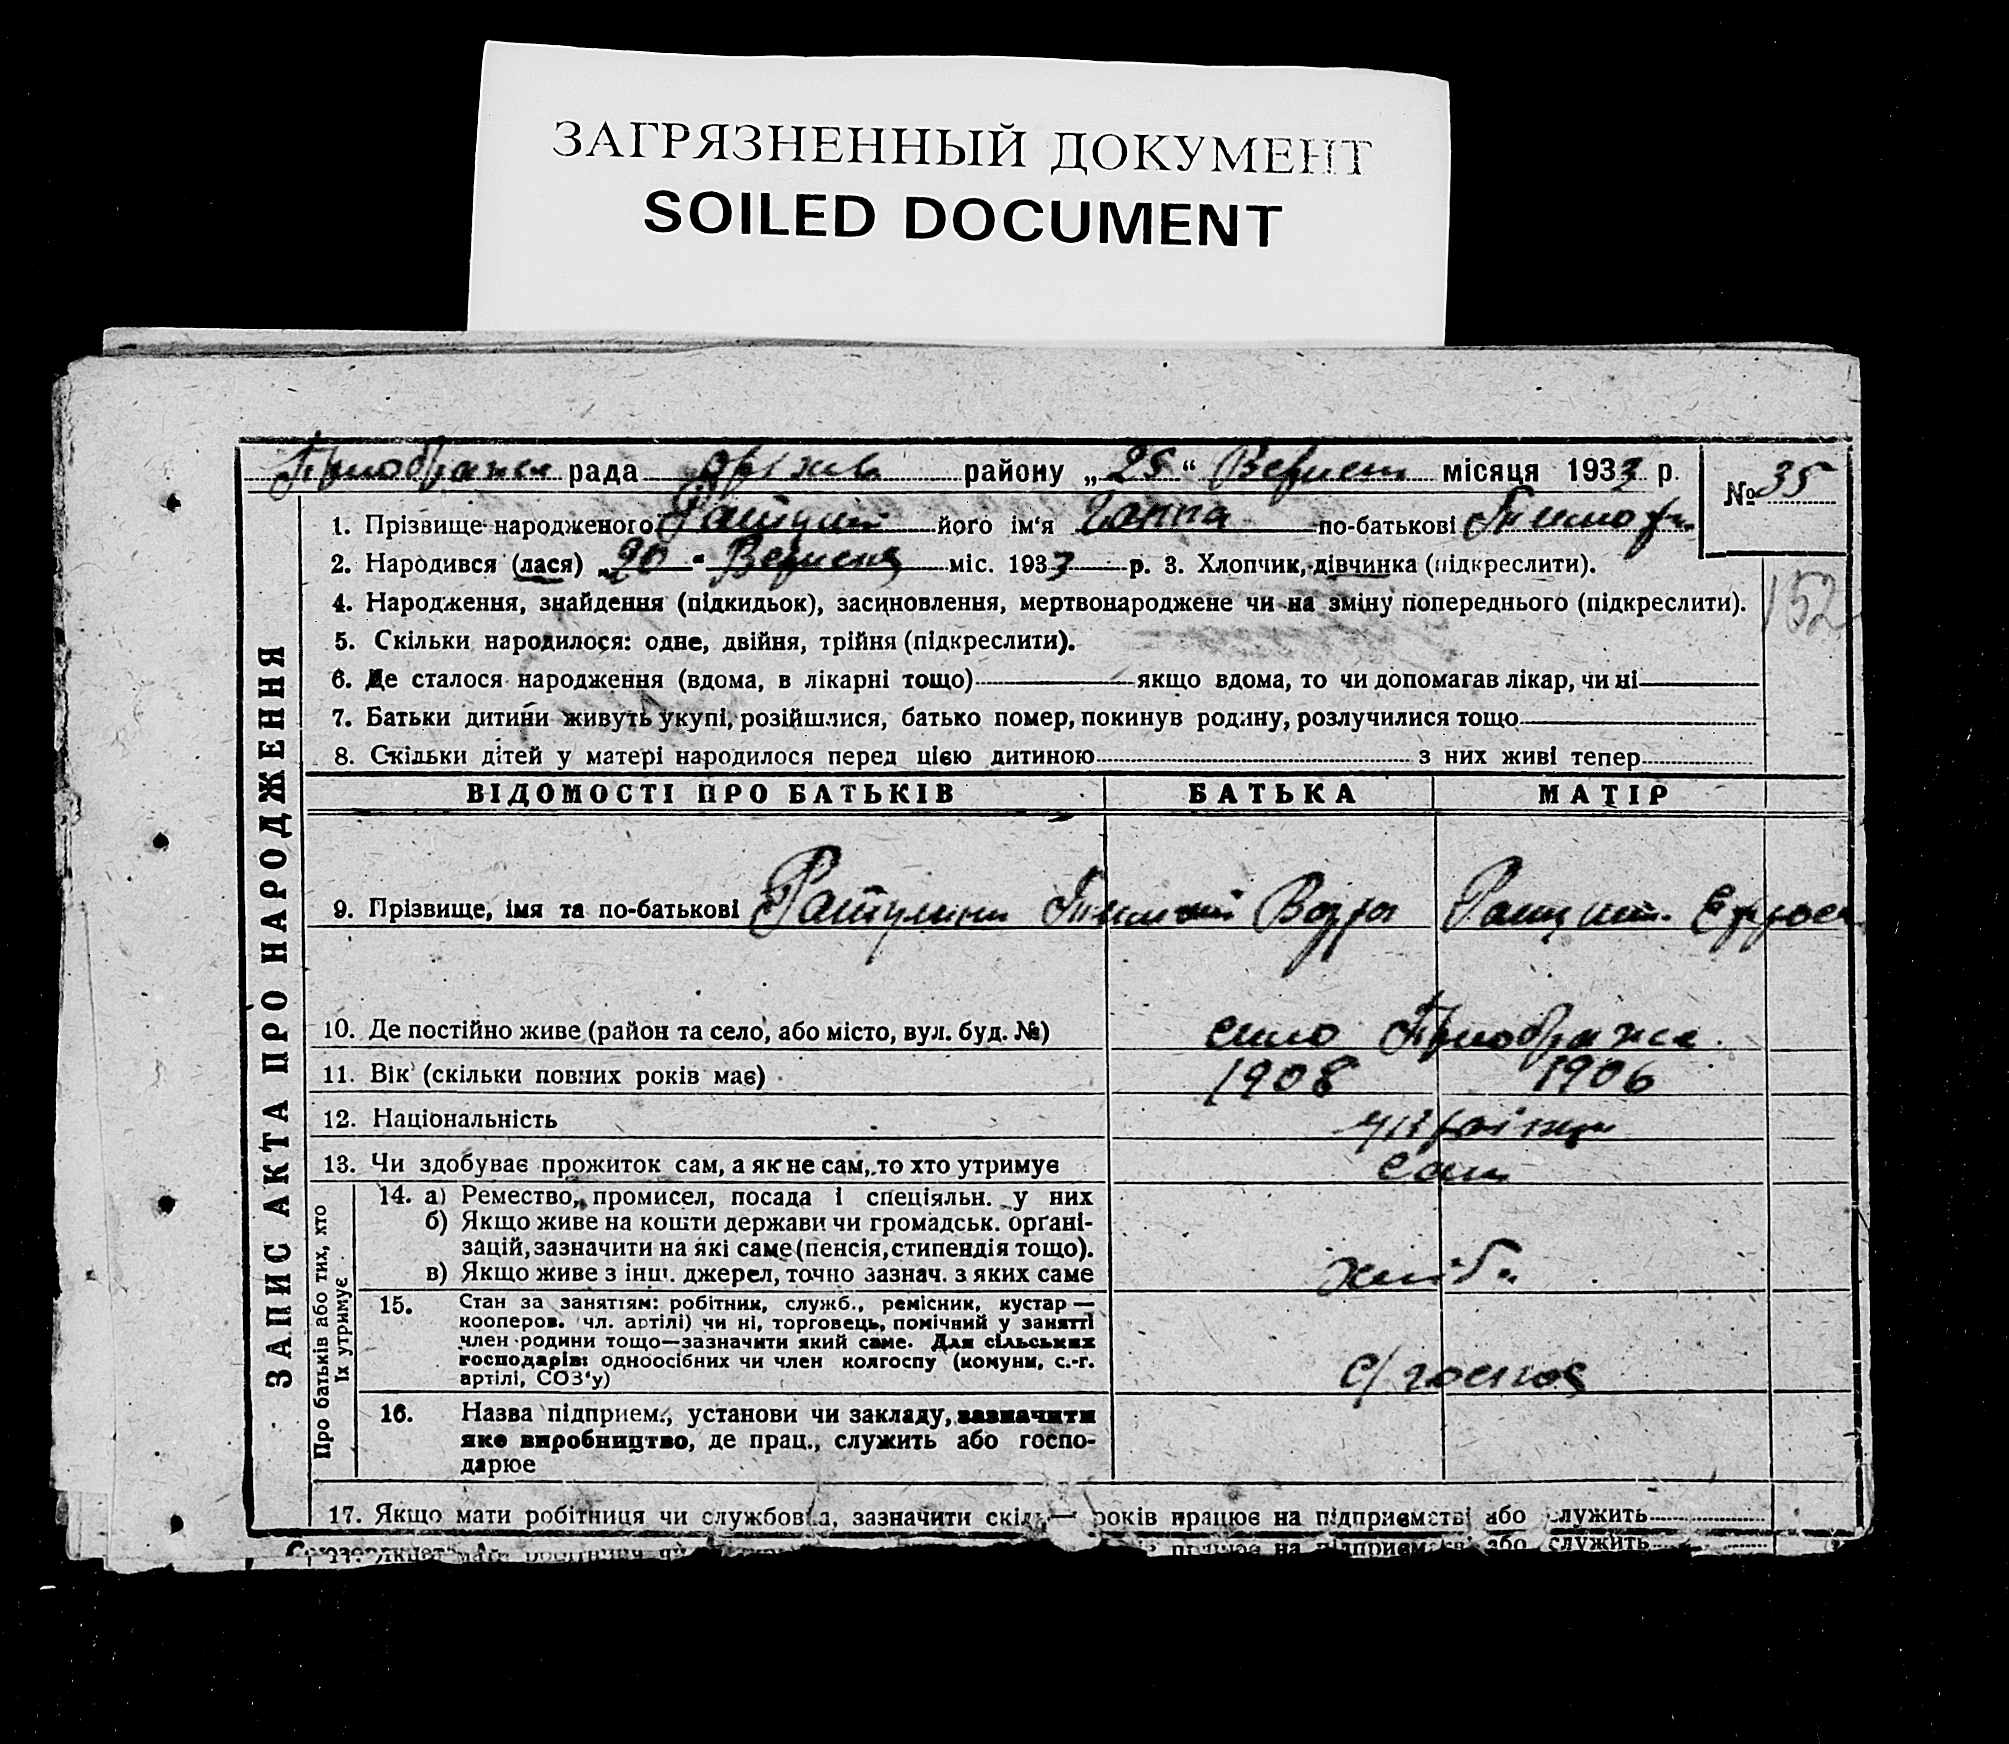 ЗАГРЯЗНЕННЫЙ ДОКУМЕНТ
SOILED DOCUMENT
рада району „25“ Вересня місяця 1933 р. № 35
1. Прізвище народженого його ім'я Ганна по-батькові Тимоф
2. Народився (лася) „20“ Вересня міс. 1933 р. 3. Хлопчик, дівчинка (підкреслити).
152
4. Народження, знайдення (підкидьок), засиновлення, мертвонароджене чи на зміну попереднього (підкреслити).
5. Скільки народилося: одне, двійня, трійня (підкреслити).
6. Де сталося народження (вдома, в лікарні тощо) якщо вдома, то чи допомагав лікар, чи ні
7. Батьки дитини живуть укупі, розійшлися, батько помер, покинув родину, розлучилися тощо
8. Скільки дітей у матері народилося перед цією дитиною з них живі тепер
ВІДОМОСТІ ПРО БАТЬКІВ БАТЬКА МАТІР
9. Прізвище, імя та по-батькові
10. Де постійно живе (район та село, або місто, вул. буд. №) село
11. Вік (скільки повних років має) 1908 1906
12. Національність
13. Чи здобуває прожиток сам, а як не сам, то хто утримує сам
14. а) Ремество, промисел, посада і спеціяльн. у них
б) Якщо живе на кошти держави чи громадськ. орґані-
зацій, зазначити на які саме (пенсія, стипендія тощо).
в) Якщо живе з інш. джерел, точно зазнач. з яких саме
15. Стан за заняттям: робітник, служб., ремісник, кустар —
кооперов. чл. артілі) чи ні, торговець, помічний у занятті
член родини тощо—зазначити який саме. Для сільських
господарів: одноосібних чи член колгоспу (комуни, с.-г.
артілі, СОЗ'у)
16. Назва підприєм., установи чи закладу, зазначити
яке виробництво, де прац., служить або госпо-
дарює
17. Якщо мати робітниця чи службовка, зазначити років працює на підприємстві або служить
ЗАПИС АКТА ПРО НАРОДЖЕННЯ
Про батьків або тих, хто
їх утримує